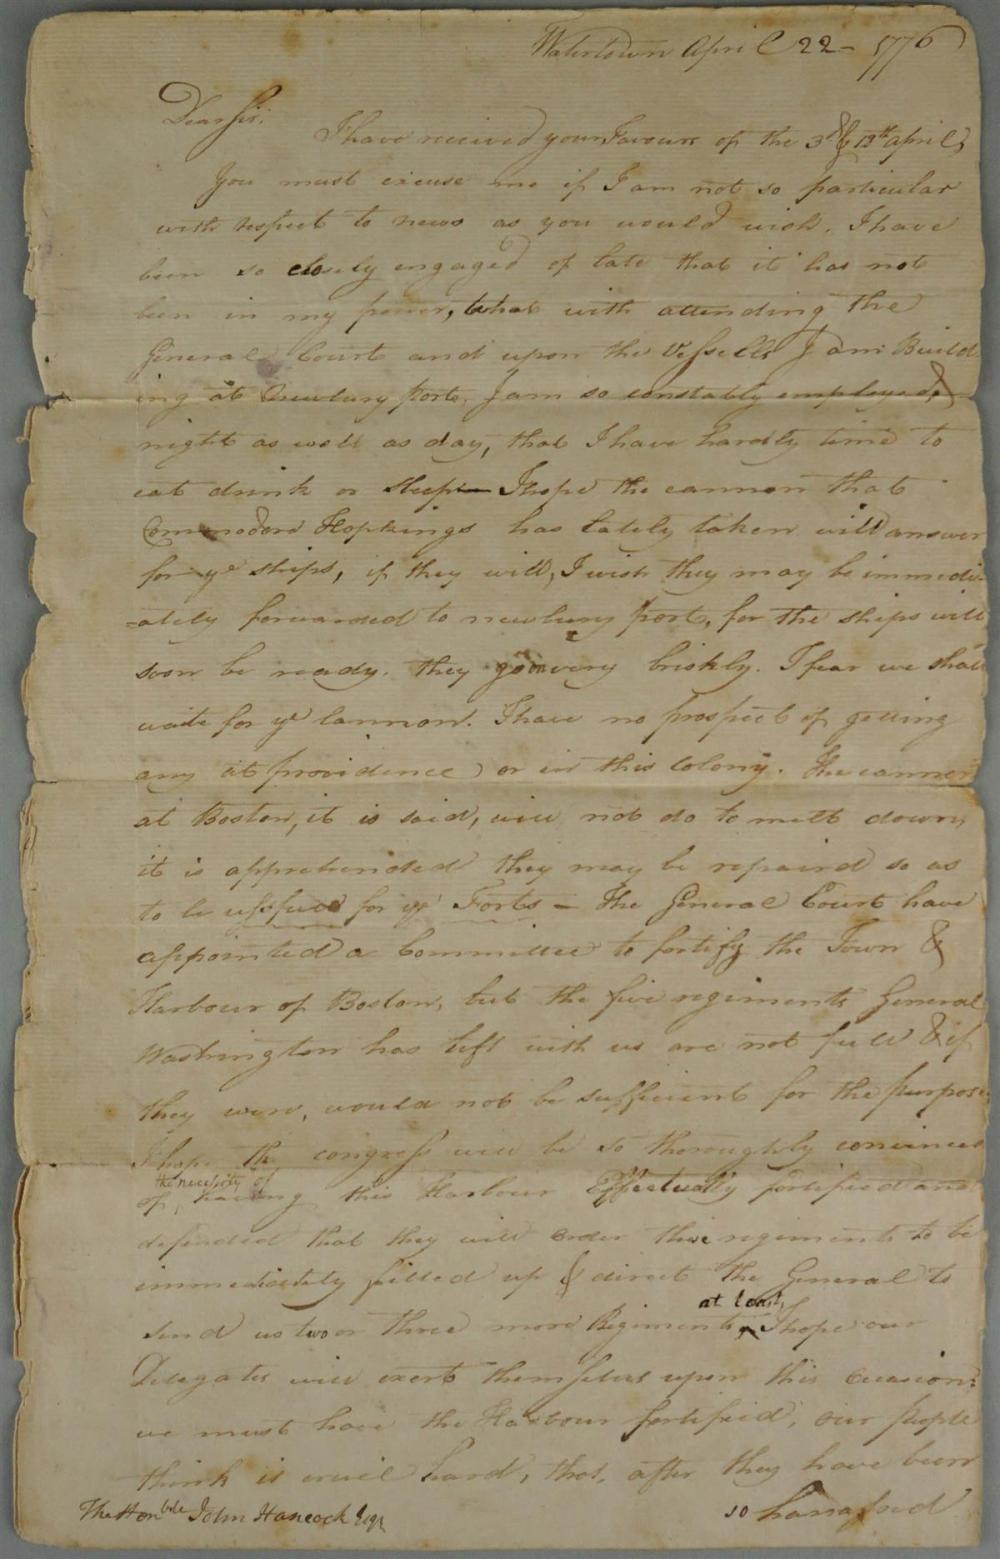 Watertown April 22 - 1776
Dear Sir.
I have received your Favours of the 3d & 12th April,
You must excuse me if I am not so particular
with respect to news as you would wish. I have
been so closely engaged of late that it has not
been in my power, what with attending the
General Court and upon the Vessells I am Build-
ing at Newbury Port, I am so constatly employed, &
night as well as day, that I have hardly time to
eat drink or sleep — I hope the cannon that
Commodore Hopkings has lately taken will answer
for ye ships, if they will, I wish they may be immedi-
=ately forwarded to newbury port, for the ships will
soon be ready. they go on very briskly. I fear we shall
waite for ye Cannon. I have no prospect of getting
any at providence or in this Colony. The cannon
at Boston, it is said, will not do to melt down,
it is apprehended they may be repaired so as
to be usefull for ye Forts — The General Court have
appointed a Committee to fortify the Town &
Harbour of Boston, but the five regiments General
Washington has left with us are not full & if
they were, would not be sufficient for the purpose
I hope the congress will be so thoroughly convinced
of the necessity of having this Harbour Effectually fortified and
defended that they will order these regiments to be
immediately filled up & direct the General to
send us two or three more Regiments at least, I hope our
Delegates will exert themselves upon this Occasion:
we must have the Harbour fortified, our people
think is cruel hard, that, after they have been
The Honble John Hancock Esqr
so harrassed